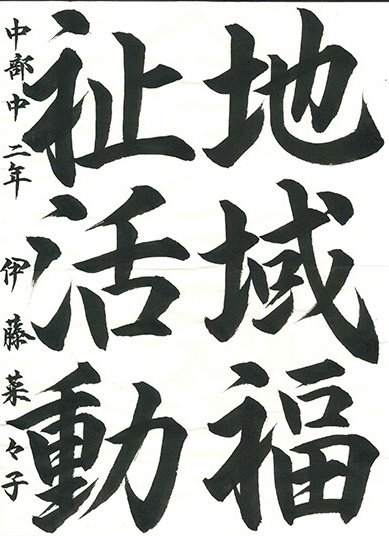 地域福
祉活動
中部中二年 伊藤菜々子